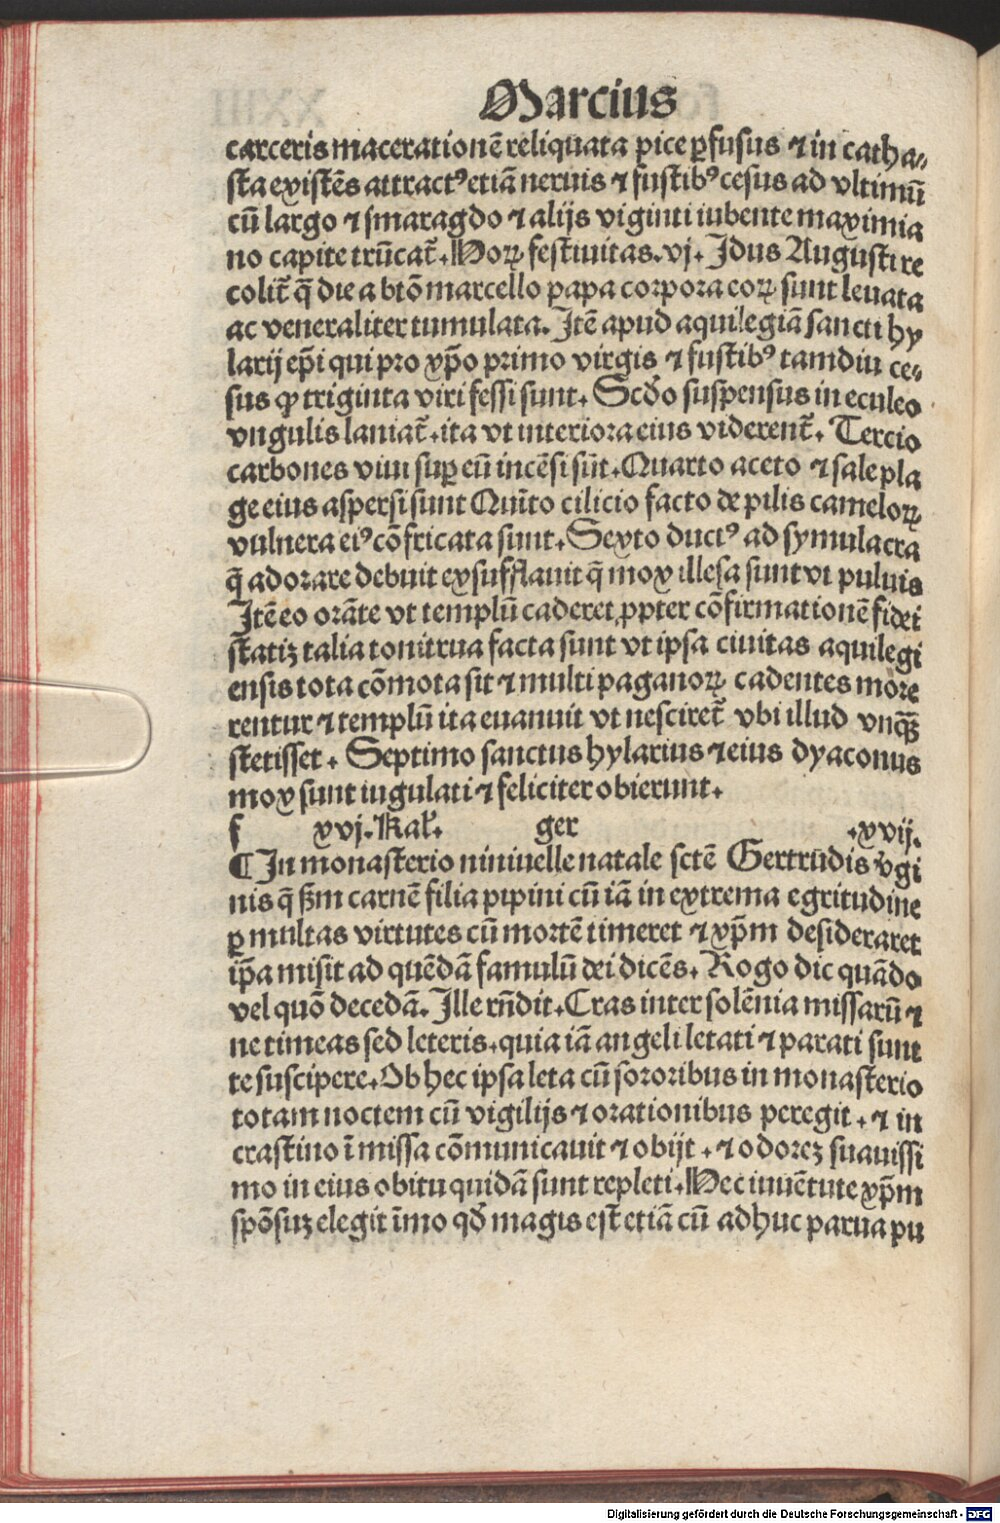 Marcius
carceris macerationē reliquata pice ꝑfusus ⁊ in catha⸗
sta existēs attractꝰ etiā neruis ⁊ fustibꝰ cesus ad vltimū
cū largo ⁊ smaragdo ⁊ alijs viginti iubente maximia
no capite trūcat̃. Hoꝝ festiuitas. vj. Idus Augusti re
colit̃ q̄ die a btō marcello papa corpora eoꝝ sunt leuata
ac veneraliter tumulata. Itē apud aquilegiā sancti hy
larij ep̄i qui pro xp̄o primo virgis ⁊ fustibꝰ tamdiu ce⸗
sus ꝙ triginta viri fessi sunt. Scd̄o suspensus in eculeo
vngulis laniat̃. ita vt interiora eius viderent̃. Tercio
carbones viui suꝑ eū incēsi sūt. Quarto aceto ⁊ sale pla
ge eius aspersi sunt Quīto cilicio facto de pilis cameloꝝ
vulnera eiꝰ cōfricata sunt. Sexto ductꝰ ad symulacra
q̄ adorare debuit exsufflauit q̄ mox illesa sunt vt puluis
Itē eo orāte vt templū caderet ꝓpter cōfirmationē fidei
statiꝫ talia tonitrua facta sunt vt ipsa ciuitas aquilegi
ensis tota cōmota sit ⁊ multi paganoꝝ cadentes more
rentur ⁊ templū ita euanuit vt nesciret̃ vbi illud vnqꝫ̄
stetisset. Septimo sanctus hylarius ⁊ eius dyaconus
mox sunt iugulati ⁊ feliciter obierunt.
f xvj. Kal̓. ger .xvij.
¶ In monasterio niniuelle natale sctē Gertrudis v̓gi
nis q̄ ẜm carnē filia pipini cū iā in extrema egritudine
ꝑ multas virtutes cū mortē timeret ⁊ xp̄m desideraret
ip̄a misit ad quēdā famulū dei dicēs. Rogo dic quādo
vel quō decedā. Ille rn̄dit. Cras inter solēnia missarū ⁊
ne timeas sed leteris. quia iā angeli letati ⁊ parati sunt
te suscipere. Ob hec ipsa leta cū sororibus in monasterio
totam noctem cū vigilijs ⁊ orationibus peregit. ⁊ in
crastino ī missa cōmunicauit ⁊ obijt. ⁊ odoreꝫ suauissi
mo in eius obitu quidā sunt repleti. Hec iuuētute xp̄m
spōsuꝫ elegit īmo qd̄ magis est etiā cū adhuc parua pu
Digitalisierung gefördert durch die Deutsche Forschungsgemeinschaft - DFG